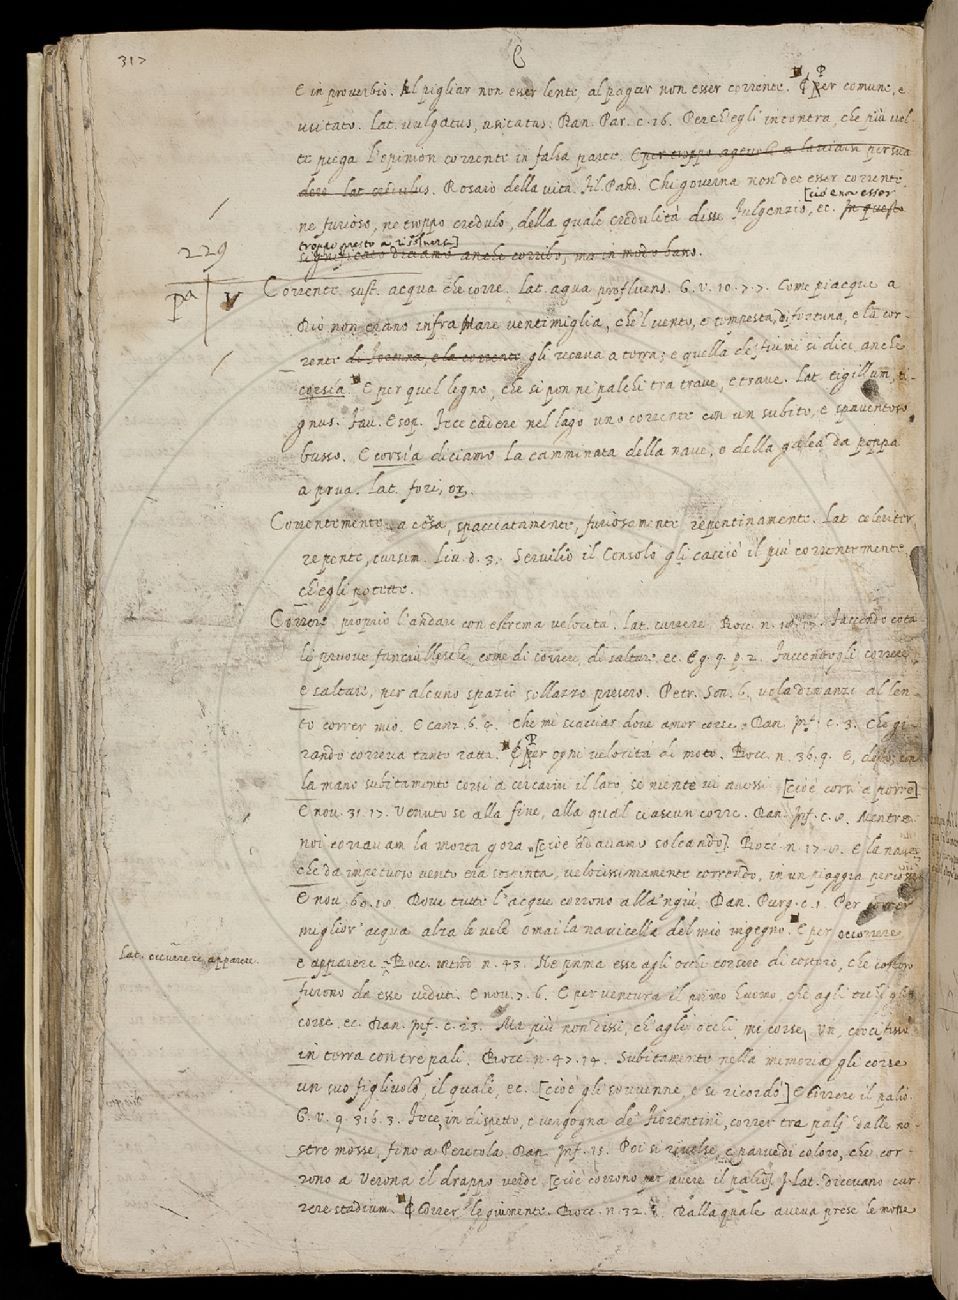 317
C
E in proverbio. Al pigliar non esser lente, al pagar non esser corrente. E per comune, e
usitato. Lat. vulgatus, usitatus. Dan. Par. c. 16. Perch'egli incontra, che più vol-
te piega L'opinion corrente in falsa parte. E per troppo agevole a lasciarsi persua
dere lat. credulus. Rosaio della vita. Il Pand. Chi governa non dee esser corrente,
[cioè non esser
ne furioso, ne troppo credulo, della quale credulità disse Fulgenzio, ec. In questo
troppo presto a risolvere]
significato diciamo anche corribo, ma in modo basso.
229
pa V
Corrente. sust. acqua che corre. Lat. aqua profluens. G. V. 10. 7. 7. Come piacque a
Dio non erano infra Mare ventimiglia, che 'l vento, e tempesta, di fortuna, e la cor-
rente di Fortuna, e la corrente gli recava a terra; e quella de' fiumi si dice anche
corsia. E per quel legno, che si pon ne' palchi tra trave, e trave. Lat. tigillum, ti-
gnus. Fav. Esop. Fece cadere nel lago uno corrente con un subito, e spaventoso
busso. E corsia diciamo la camminata della nave, o della galea da poppa
a prua. Lat. fori, or.
Correntemente. a corsa, spacciatamente, furiosamente repentinamente. Lat. celeriter
repente, cursim. Liv. d. 3. Servilio il Consolo gli cacciò il più correntemente,
ch'egli potette.
Correre proprio l'andare con estrema velocità. Lat. currere. Bocc. n. Faccendo cota
li pruove fanciullesche, come di correre, di saltare, ec. E g. 9. p. 2. Faccendogli correre,
e saltare, per alcuno spazio sollazzo presero. Petr. Son. 6. vola dinanzi al len-
to correr mio. E canz. 6. 4. Che mi scacciar dove amor corse. Dan. Inf. c. 3. Che gi-
rando correva tanto ratta. E per ogni velocità di moto. Bocc. n. 36. 9. E, con
la mano subitamente corsi a cercarmi il lato, se niente vi avessi [cioè corsi a porre]
E nov. 31. 17. Venuto se alla fine, alla qual ciascun corre. Dan. Inf. c. 8. Mentre
noi corravam la morta gora [cioè andavamo solcando]. Bocc. n. 17. 8. E la nave,
che da impetuoso vento era sospinta, velocissimamente correndo, in un piaggia percosse
E nov. 60. 18. Dove tutte l'acque corrono alla 'ngiù. Dan. Purg. c. 1. Per correr
miglior acqua alza le vele omai la navicella del mio ingegno. E per occorrere
Lat. occurrere, apparere.
e apparere. Bocc. introd. n. 43. Ne prima esse agli occhi corsero di costoro, che costoro
furono da esse veduti. E nov. 7. 6. E per ventura il primo huomo, che agli occhi gli
corse, ec. Dan. Inf. c. 23. Ma più non dissi, ch'agli occhi mi corse, Un, crocifisso
in terra con tre pali. Bocc. n. 47. 14. Subitamente nella memoria gli corse
un suo figliuolo, il quale, ec. [cioè gli sovvenne, e si ricordò] E Correre il palio.
G. V. 9. 316. 3. Fece, in dispetto, e vergogna de' Fiorentini, correr tra palj dalle no-
stre mosse, fino a Peretola. Dan. Inf. 15. Poi si rivolse, e parve di coloro, che cor-
rono a Verona il drappo verde, [cioè corrono per avere il palio]. I Lat. dicevano cur
rere stadium. E Correr le giumente. Bocc. n. 32. Dalla quale aveva prese le mosse